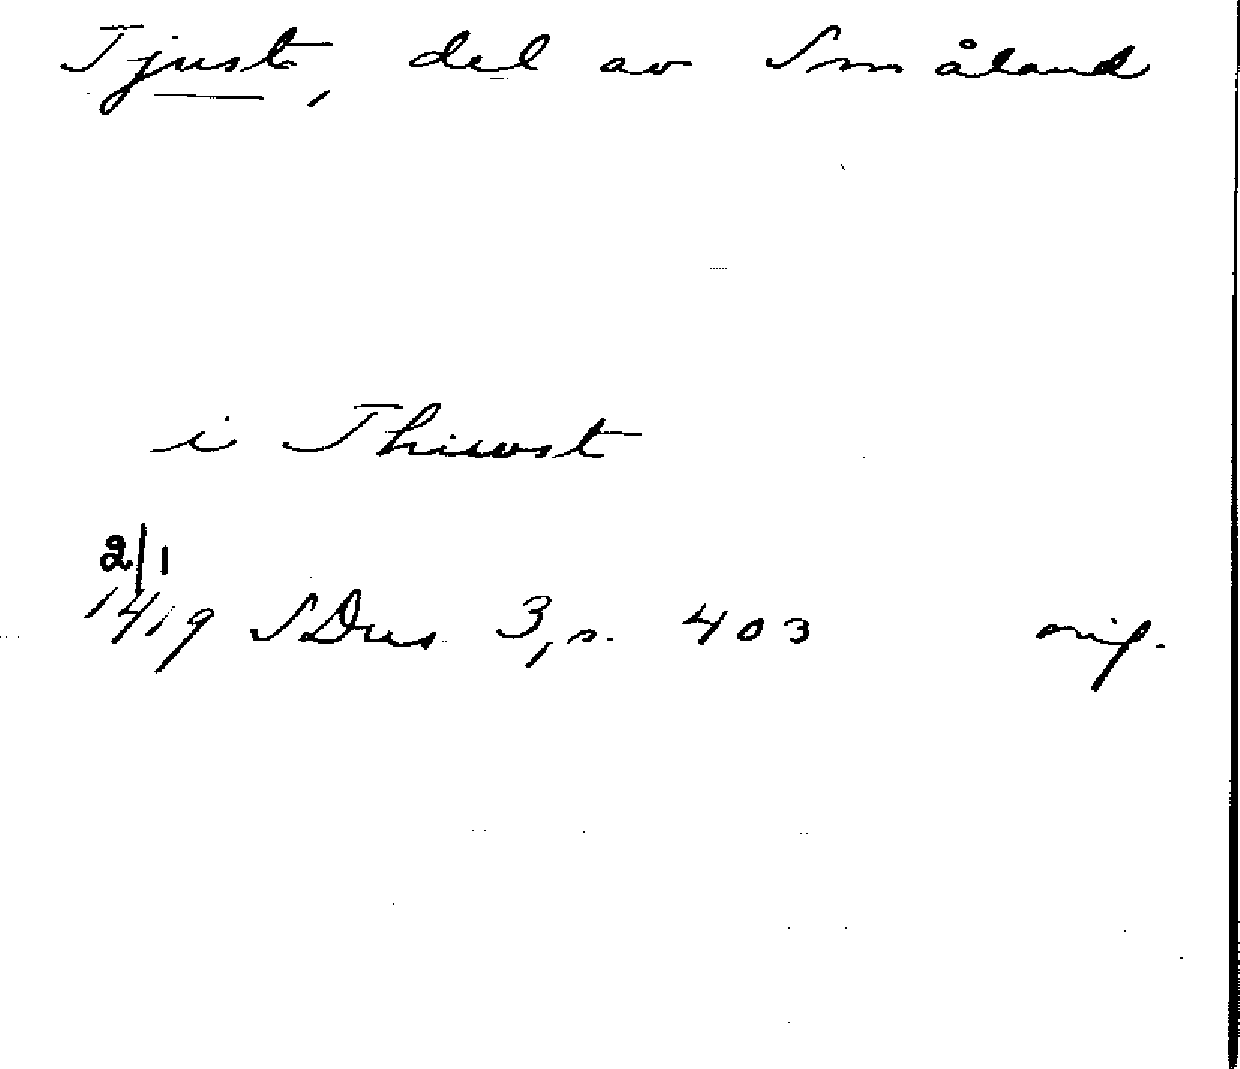 Tjust, del av Småland
i Thiwst
2/1
1419 SDns 3, s. 403 orig.